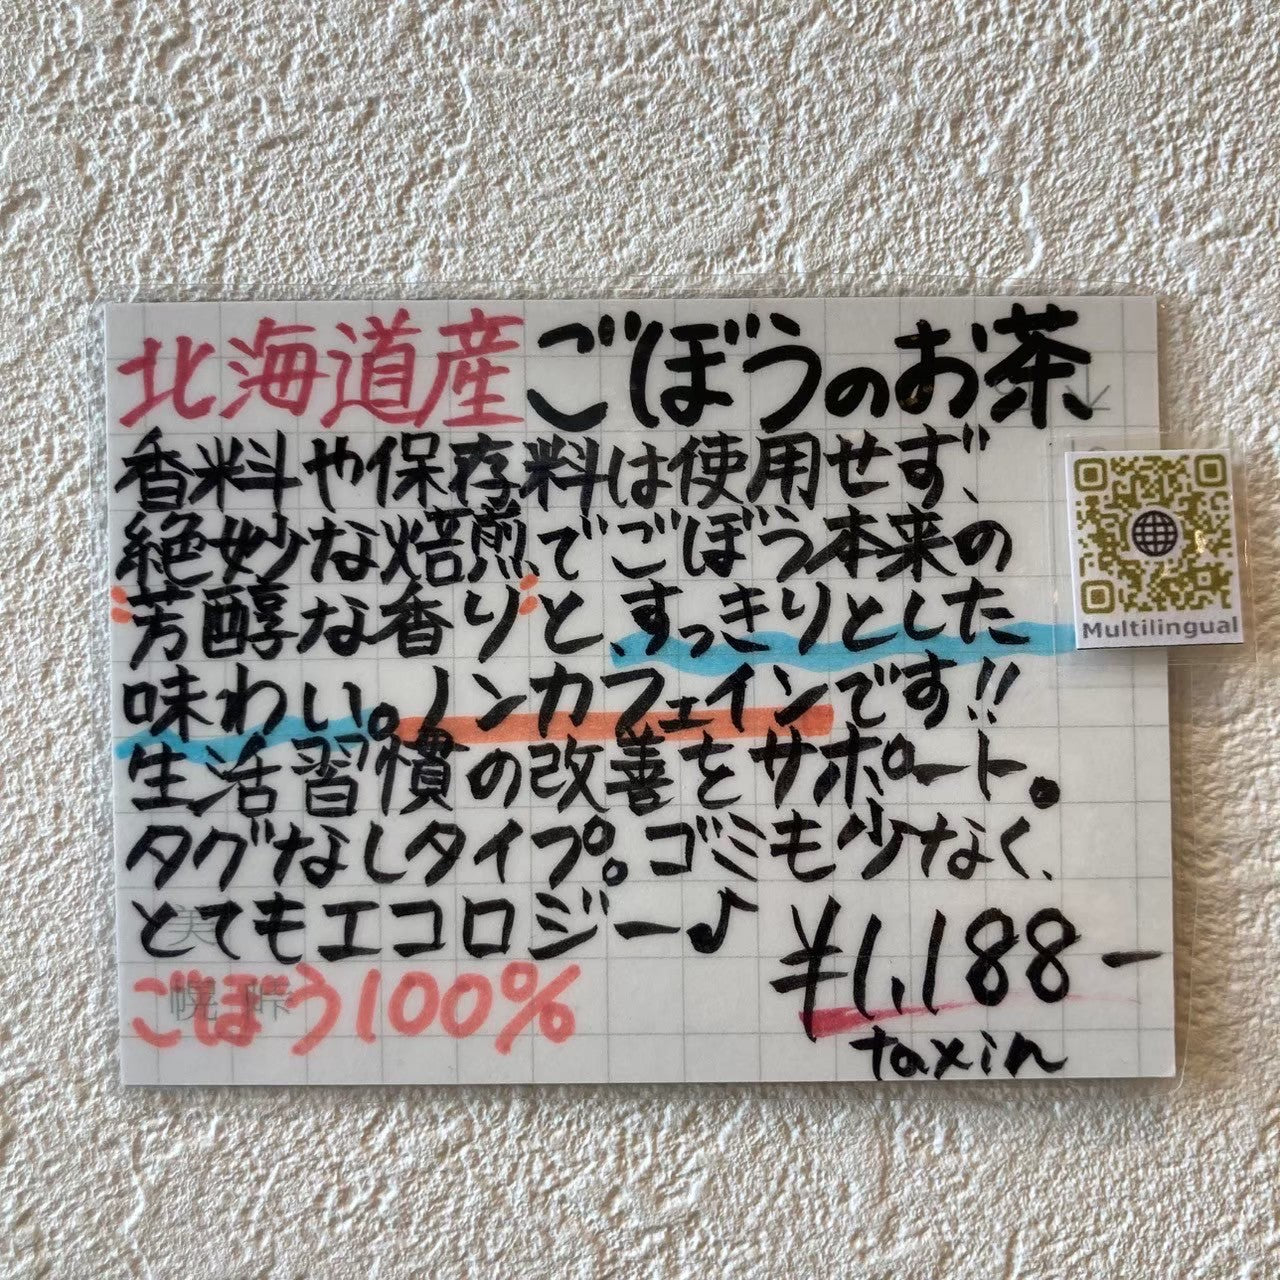 北海道産 ごぼうのお茶
香料や保存料は使用せず、
絶妙な焙煎でごぼう本来の
"芳醇な香り"と、すっきりとした
味わい。ノンカフェインです!!
生活習慣の改善をサポート。
タグなしタイプ。ゴミも少なく、
とてもエコロジー♪
ごぼう100%
¥1,188-
taxin
Multilingual